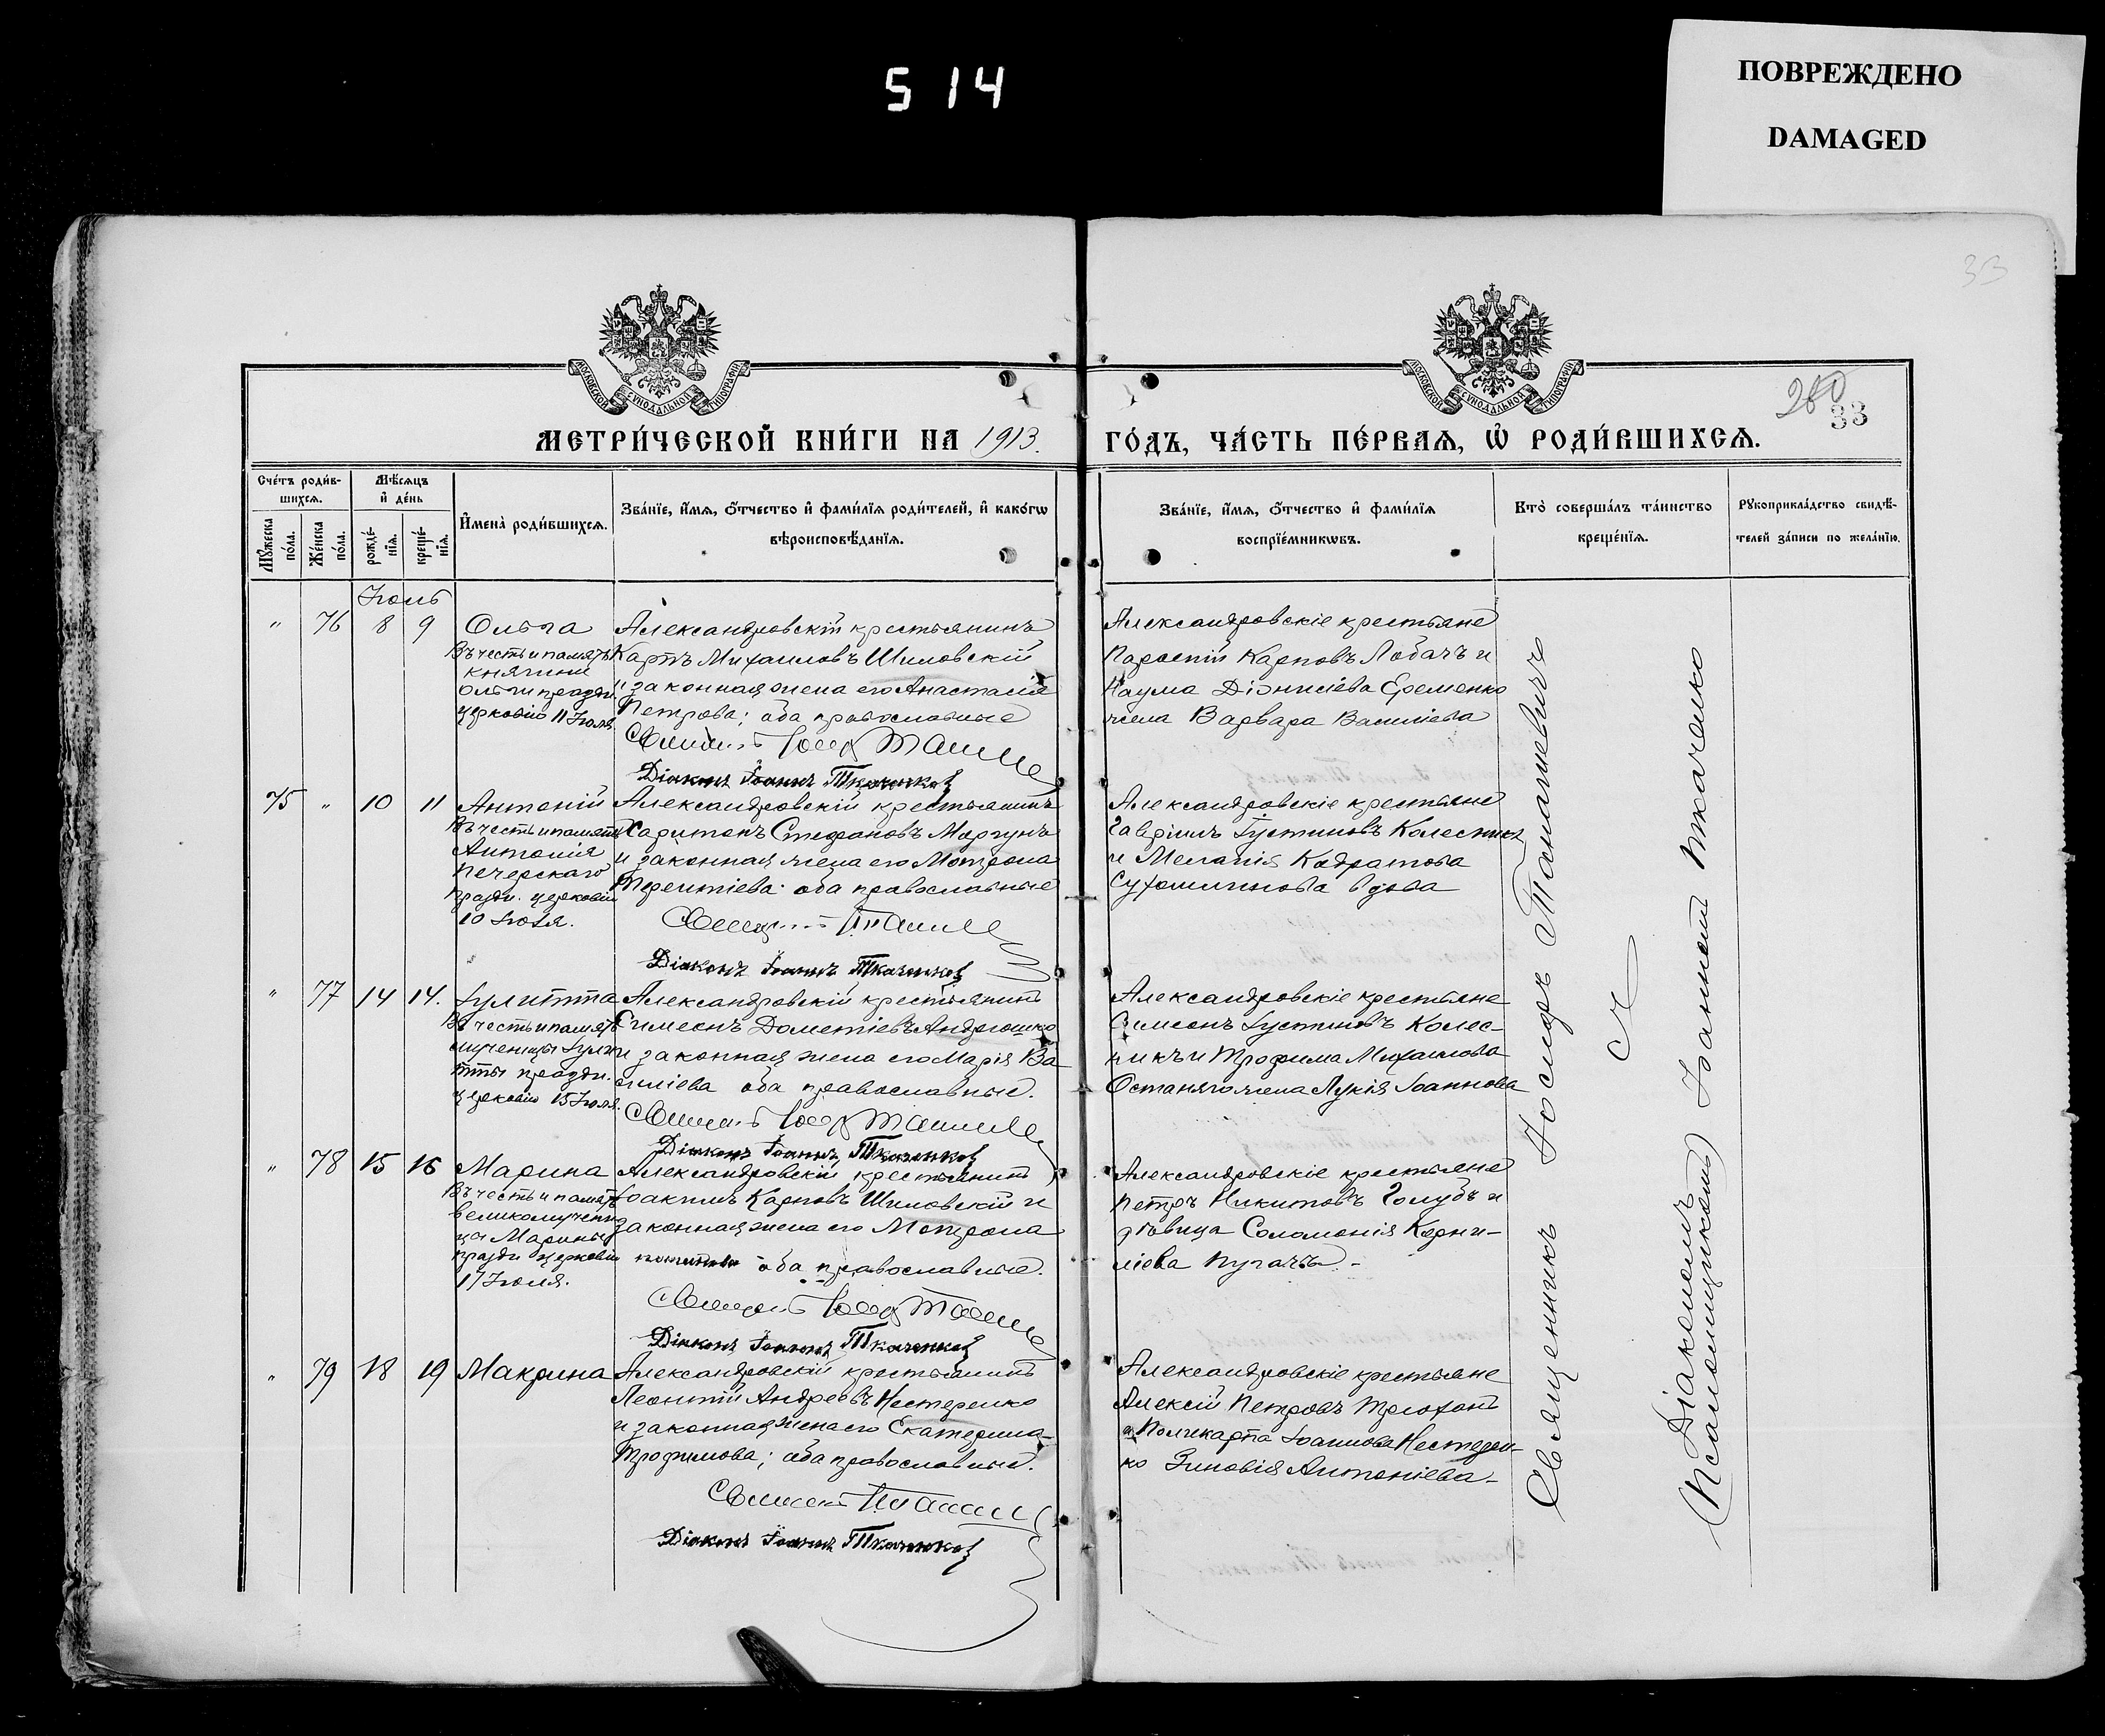 514
ПОВРЕЖДЕНО
DAMAGED
33
МОСКОВСКОЙ СѴНОДАЛЬНОЙ ТИПОГРАФІИ
МОСКОВСКОЙ СѴНОДАЛЬНОЙ ТИПОГРАФІИ
260
33
МЕТРИ́ЧЕСКОЙ КНИ́ГИ НА 1913.
ГО́ДЪ, ЧА́СТЬ ПЕ́РВАѦ, Ѡ҆ РОДИ́ВШИХСѦ.
Сче́тъ роди́в-
шихсѧ.
Мꙋ́жеска по́ла.
Же́нска по́ла.
Мѣ́сѧцъ
и҆ де́нь
рожде́-
нїѧ.
креще́-
нїѧ.
И҆мена̀ роди́вшихсѧ.
Зва́нїе, и҆́мѧ, ѻ҆́тчество и҆ фами́лїѧ роди́телей, и҆ како́гѡ
вѣроисповѣ́данїѧ.
Зва́нїе, и҆́мѧ, ѻ҆́тчество и҆ фами́лїѧ
воспрїе́мникѡвъ.
Кто̀ соверша́лъ та́инство
креще́нїѧ.
Рꙋкоприкла́дство свидѣ́-
телей за́писи по жела́нїю.
Іюль
" 76 8 9 Ольга
Въ честь и память
княгини
Ольги праздн.
церковію 11 Іюля.
Александровскій крестьянинъ
Карпъ Михаиловъ Шиловскій
и законная жена его Анастасія
Петрова; оба православные
Діаконъ Іоаннъ Ткаченковъ
Александровскіе крестьяне
Карповъ Лобачъ и
Наума Діонисіева Еременко
жена Варвара Василіева
75 " 10 11 Антоній
Въ честь и память
Антонія
Печерскаго
праздн. церковію
10 Іюля.
Александровскій крестьянинъ
Харитонъ Стефановъ Моргунъ
и законная жена его Матрона
Терентіева; оба православные
Діаконъ Іоаннъ Ткаченковъ
Александровскіе крестьяне
Гавріилъ Іустиновъ Колесникъ
и Меланія Кодратова
Сухомлинова вдова
" 77 14 14. Іулитта
Въ честь и память
мученицы Іули-
тты праздн.
церковію 15 Іюля.
Александровскій крестьянинъ
Симеонъ Дометіевъ Андрюшко
и законная жена его Марія Ва-
силіева оба православные.
Діаконъ Іоаннъ Ткаченковъ
Александровскіе крестьяне
Симеонъ Іустиновъ Колес-
никъ и Трофима Михаилова
жена Лукія Іоаннова
" 78 15 16 Марина
Въ честь и память
великомучени-
цы Марины
праздн. церковію
17 Іюля.
Александровскій крестьянинъ
Іоакимъ Карповъ Шиловскій и
законная жена его Матрона
оба православные.
Діаконъ Іоаннъ Ткаченковъ
Александровскіе крестьяне
Петръ Никитовъ Голубъ и
дѣвица Соломонія Корни-
ліева Пугачъ. -
" 79 18 19 Макрина
Александровскій крестьянинъ
Леонтій Андреевъ Нестеренко
и законная жена его Екатерина
Трофимова; оба православные.
Діаконъ Іоаннъ Ткаченковъ
Александровскіе крестьяне
Алексій Петровъ Трюхонъ
и Поликарпа Іоаннова Нестерен-
ко Зиновія Антоніева-
Священникъ Іосифъ Топачевичъ
съ
Діакономъ
(Псаломщикомъ) Іоанномъ Ткаченко